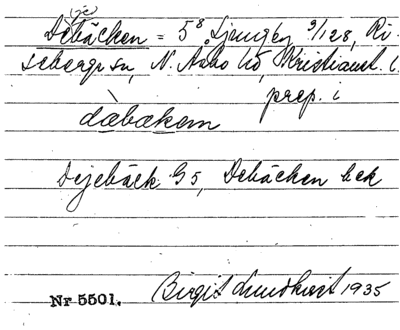 (je)
Debäcken = 5⁸ Ljungby 9/128, Ri-
seberga sn, N. Åsbo hd, Kristianst. l.
prep. i
dæ̀bækem
Dyjebäck G5, Debäcken bek
Birgit Lundkvist 1935
Nr 5501.